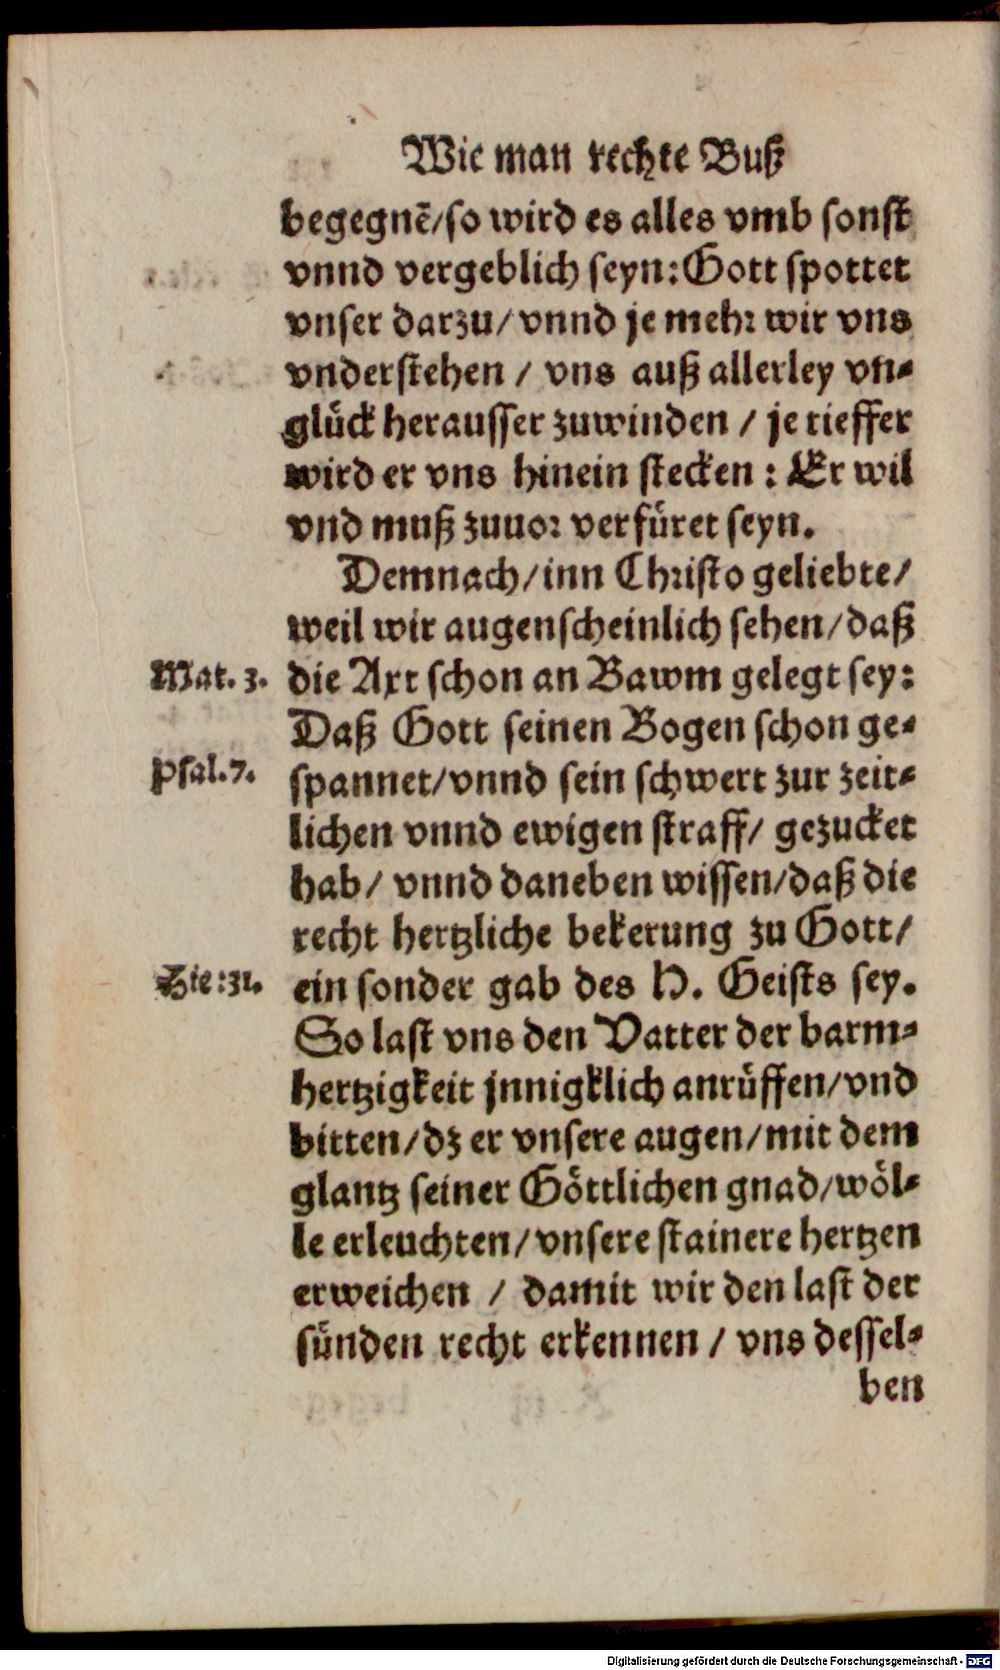 Wie man rechte Buß
begegnē/so wird es alles vmb sonst
vnnd vergeblich seyn: Gott spottet
vnser darzu/ vnnd je mehr wir vns
vnderstehen / vns auß allerley vn-
glück herausser zuwinden / je tieffer
wird er vns hinein stecken: Er wil
vnd muß zuuor versüret seyn.
Demnach/inn Christo geliebte/
weil wir augenscheinlich sehen/daß
Mat. 3. die Axt schon an Bawm gelegt sey:
Daß Gott seinen Bogen schon ge-
Psal. 7. spannet/vnnd sein schwert zur zeit-
lichen vnnd ewigen straff/ gezucket
hab/ vnnd daneben wissen/daß die
recht hertzliche bekerung zu Gott/
Hie: 31. ein sonder gab des H. Geists sey.
So last vns den Vatter der barm-
hertzigkeit jnnigklich anrüffen/vnd
bitten/dz er vnsere augen/mit dem
glantz seiner Göttlichen gnad/wöl-
le erleuchten/vnsere stainere hertzen
erweichen / damit wir den last der
sünden recht erkennen / vns dessel-
ben
Digitalisierung gefördert durch die Deutsche Forschungsgemeinschaft - DFG